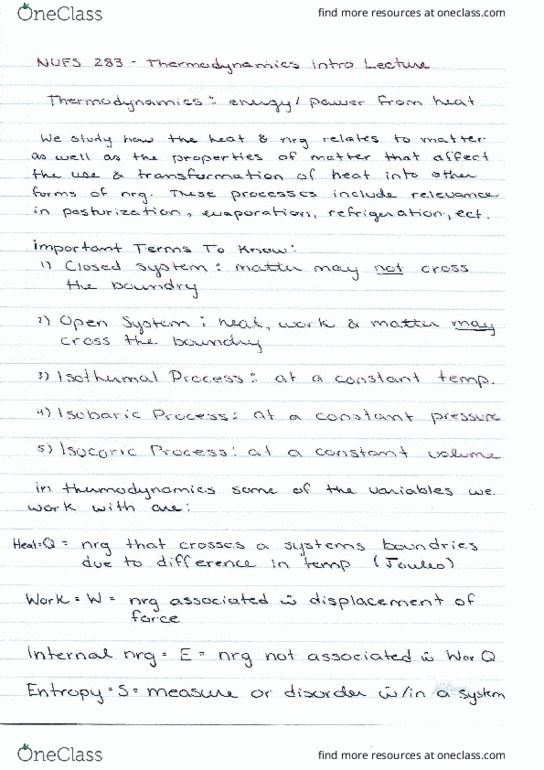 OneClass find more resources at oneclass.com
NUFS 283 - Thermodynamics Intro Lecture
Thermodynamics: energy/power from heat
We study how the heat & nrg relates to matter
as well as the properties of matter that affect
the use & transformation of heat into other
forms of nrg. These processes include relevance
in pasturization, evaporation, refrigeration, ect.
Important Terms To Know:
1) Closed system: matter may not cross
the boundry
2) Open System: heat, work & matter may
cross the boundry
3) Isothermal Process: at a constant temp.
4) Isobaric Process: at a constant pressure
5) Isocoric Process: at a constant volume
in thermodynamics some of the variables we
work with are:
Heat=Q = nrg that crosses a systems boundries
due to difference in temp (Joules)
Work = W = nrg associated w displacement of
force
Internal nrg = E = nrg not associated w W or Q
Entropy = S = measure or disorder w/in a system
OneClass find more resources at oneclass.com